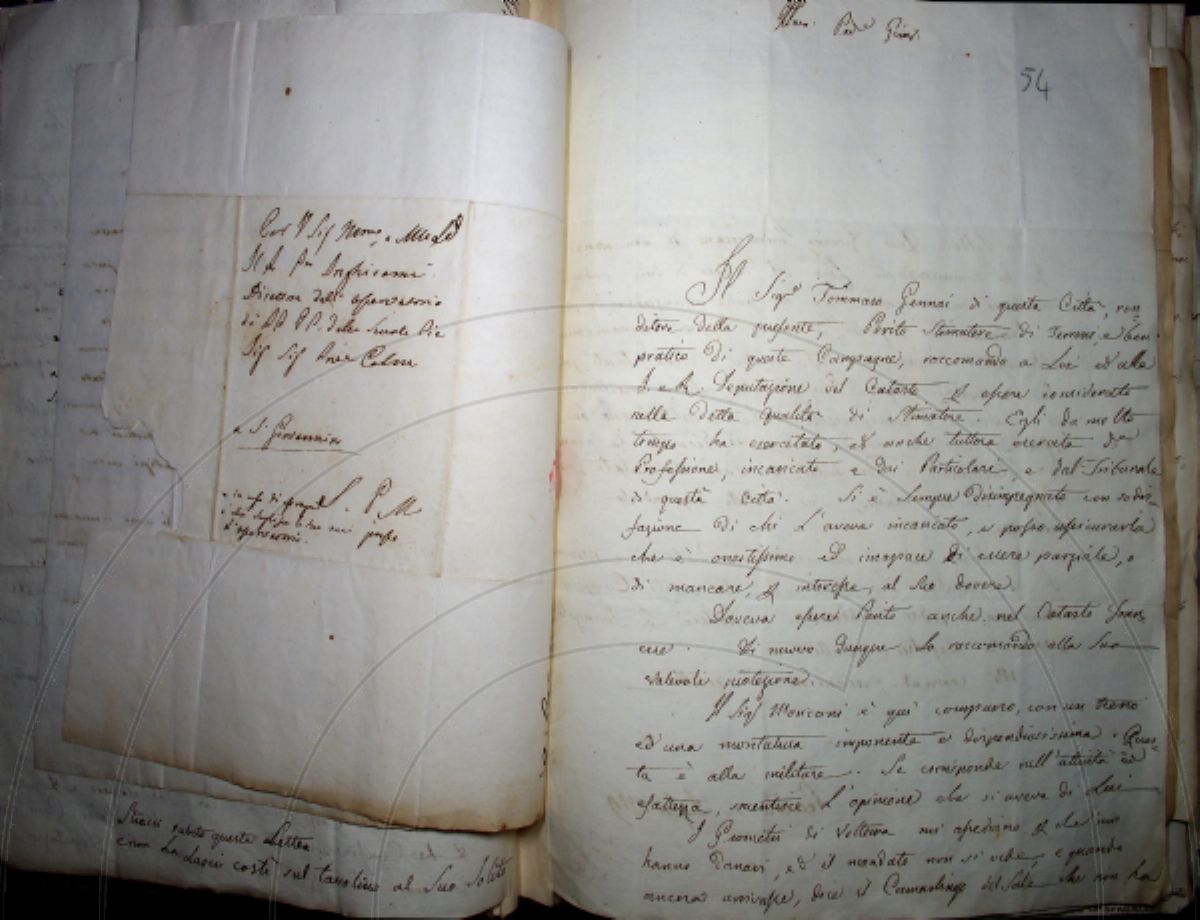 Il P. Inghirami
Direttore dell' osservatorio
di PP. PP. delle Scuole Pie
a S. Giovannino
S. P. M
Stracci subito questa Lettera
e non La Lasci costì sul tavolino al Suo Solito
54
Il Sigr Tommaso Gennai di questa Città, ren
ditore della presente, Perito Stimatore di Terreni, e ben
pratico di queste Campagne, raccomando a Lei ed alla
I. e R. Deputazione del Catasto essere considerato
nella detta qualità di Stimatore. Egli da molto
tempo ha esercitato, ed anche tuttora esercita da
Professione, incaricato e dai Particolari, e dal Tribunale
di questa Città. Si è sempre disimpegnato con sodis-
fazione di chi L'aveva incaricato, e posso assicurarla
che è onestissimo ed incapace di essere parziale, o
di mancare, interesse, al Suo dovere.
Doveva essere Perito anche nel Catasto Fran
cese. Di nuovo dunque Lo raccomando alla Sua
valevole protezione.
Il Sigr Marconi è quì comparso, con un treno
ed una montatura imponente e dispendiosissima. Ques-
ta è alla militare. Se corrisponde nell'attività ed
esattezza, smentisce L'opinione che si aveva di Lui
I Geometri di Volterra mi che non
hanno Danari, ed il mandato non si vede, e quando
ancora arrivasse, dice il Camarlingo del Sale che non ha